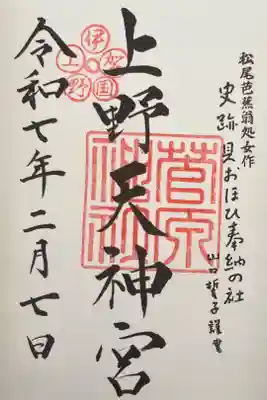 松尾芭蕉翁処女作
史跡 貝おほひ奉納の社
山口誓子謹書
上野天神宮
令和七年二月七日
伊賀国
上野
菅原神社